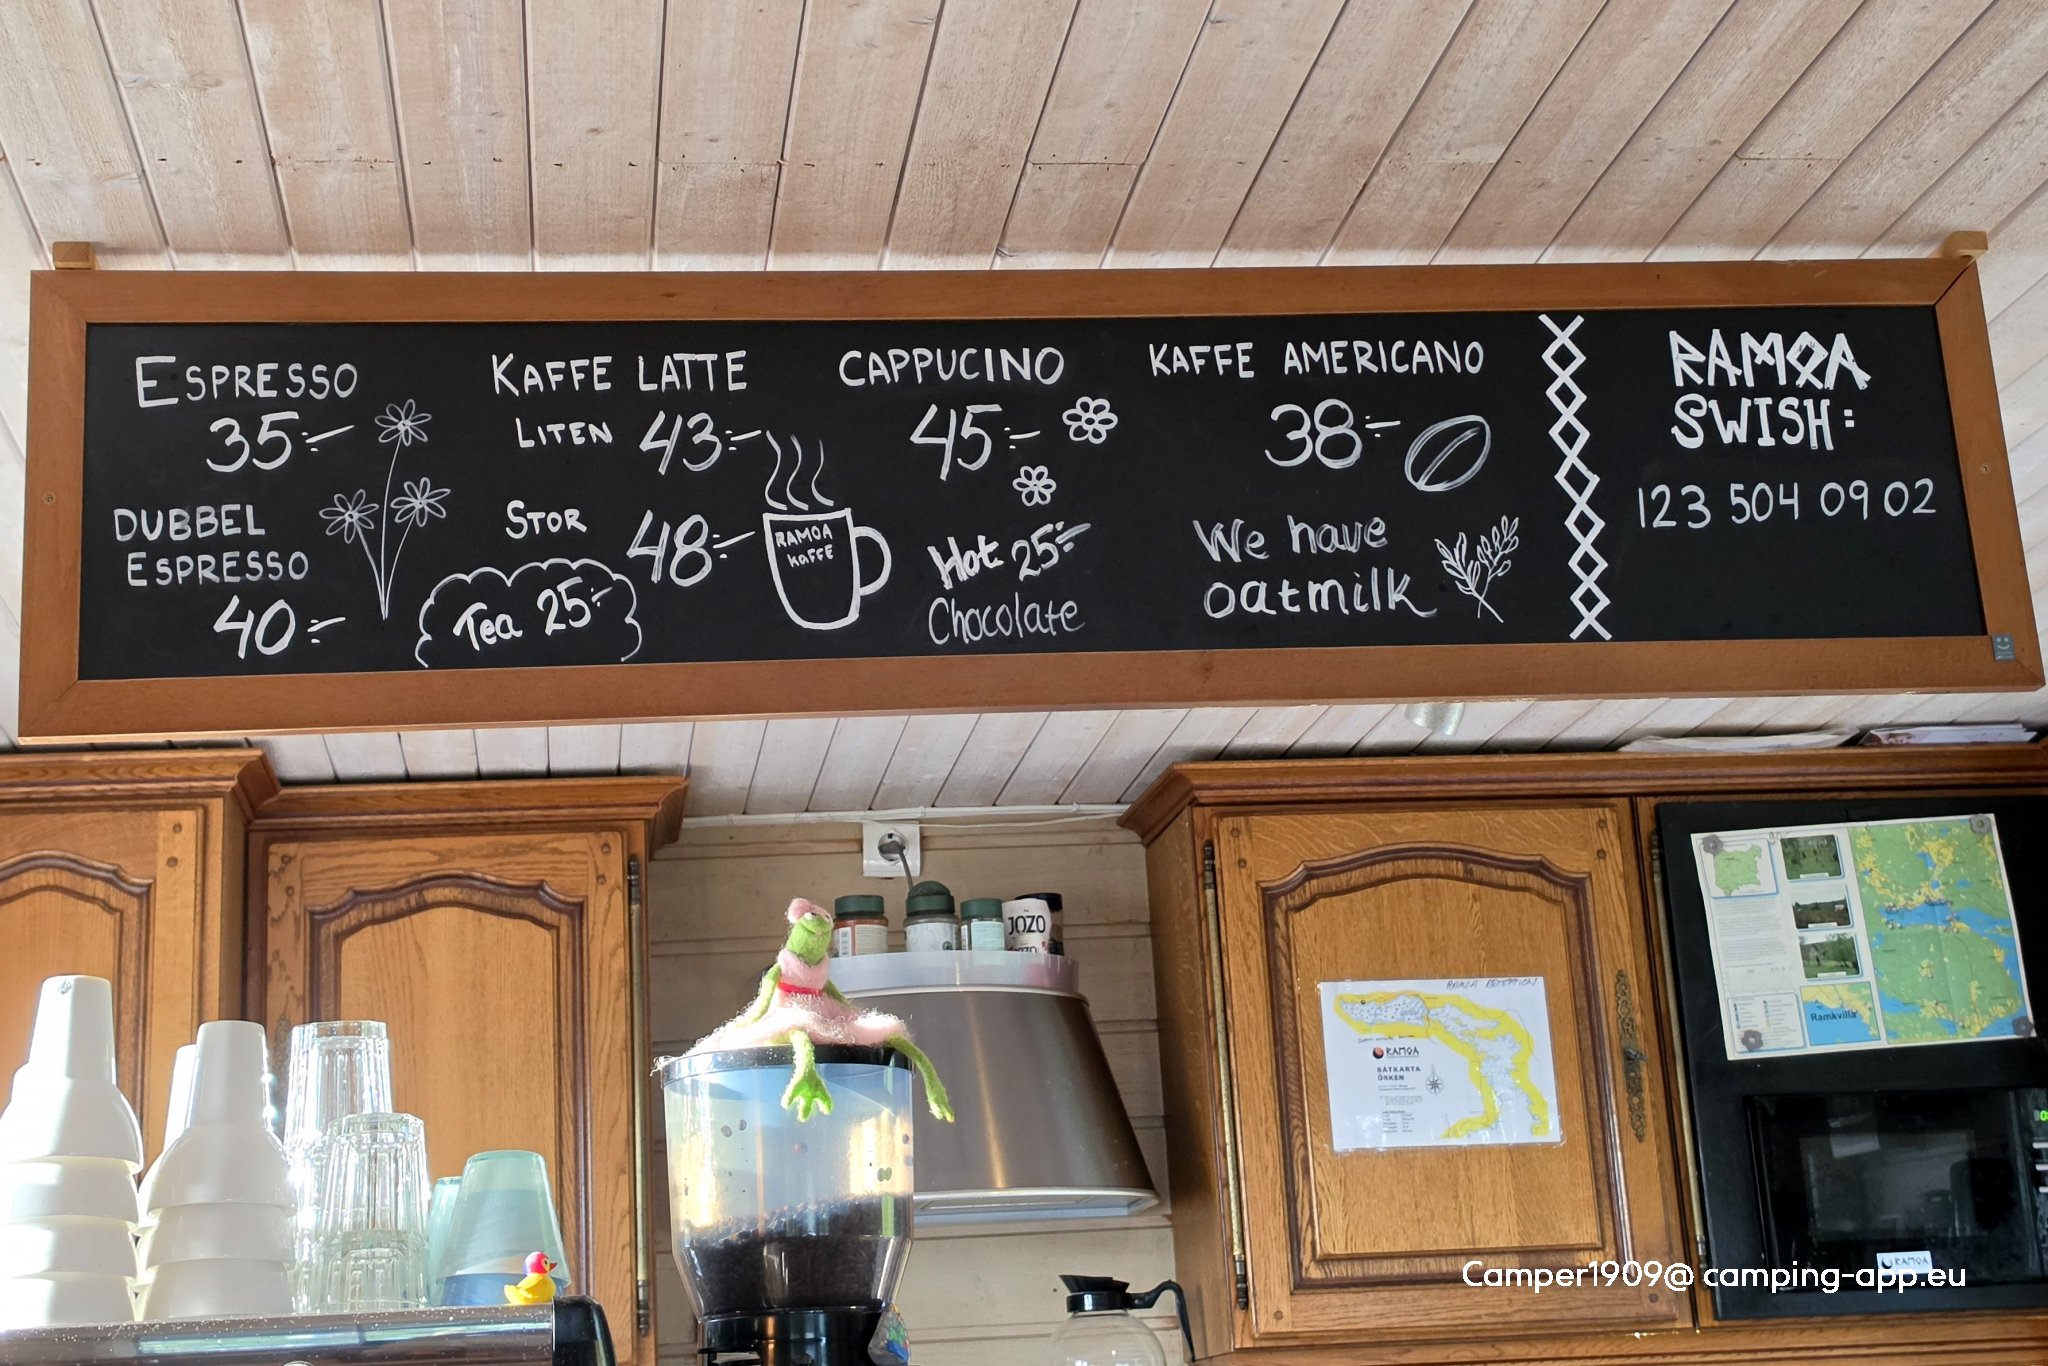 ESPRESSO
35:-
DUBBEL
ESPRESSO
40:-
KAFFE LATTE
LITEN 43:-
STOR 48:-
Tea 25:-
RAMOA
KAFFE
CAPPUCINO
45:-
Hot 25:-
Chocolate
KAFFE AMERICANO
38:-
We have
oatmilk
RAMOA
SWISH:
123 504 09 02
JOZO
RAMOA RECEPTION
RAMOA
BÅTKARTA
ÖRKEN
Ramkvilla
RAMOA
Camper1909@ camping-app.eu